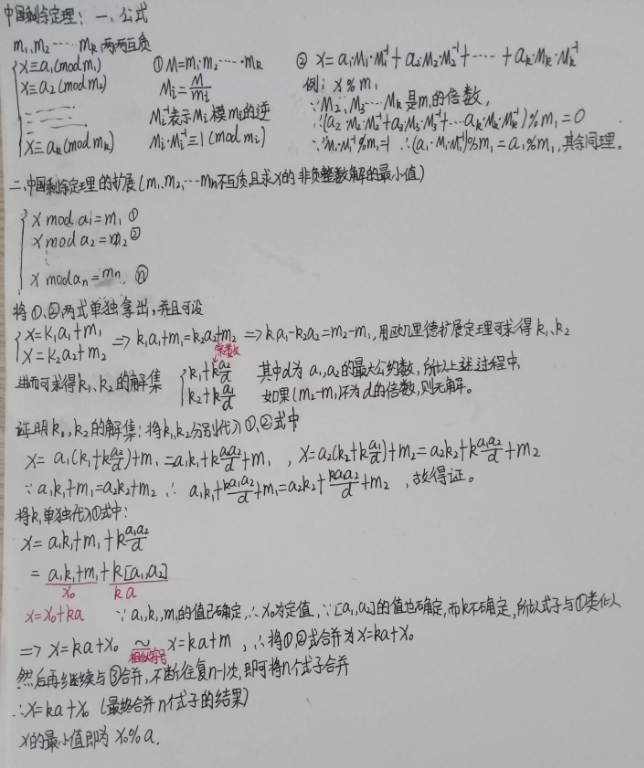 中国剩余定理：一、公式
m₁,m₂……mₖ两两互质
x≡a₁(mod m₁) ①M=m₁·m₂·……·mₖ ② x=a₁·M₁·M₁⁻¹+a₂·M₂·M₂⁻¹+……+aₖ·Mₖ·Mₖ⁻¹
x≡a₂(mod m₂) Mᵢ=M/mᵢ 例：x%m₁
Mᵢ⁻¹表示Mᵢ模mᵢ的逆 ∵M₂,M₃…Mₖ是m₁的倍数，
∴(a₂·M₂·M₂⁻¹+a₃·M₃·M₃⁻¹+…aₖ·Mₖ·Mₖ⁻¹)%m₁=0
x≡aₖ(mod mₖ) Mᵢ·Mᵢ⁻¹≡1(mod mᵢ) ∵M₁·M₁⁻¹%m₁=1 ∴(a₁·M₁·M₁⁻¹)%m₁=a₁%m₁,其余同理。
二、中国剩余定理的扩展(m₁,m₂,…mₙ不互质且求x的非负整数解的最小值)
x mod a₁=m₁ ①
x mod a₂=m₂ ②
⋮
x mod aₙ=mₙ ⓝ
将①、②两式单独拿出，并且可设
x=k₁a₁+m₁ ⇒k₁a₁+m₁=k₂a₂+m₂ ⇒k₁a₁-k₂a₂=m₂-m₁,用欧几里德扩展定理可求得k₁、k₂
x=k₂a₂+m₂
进而可求得k₁、k₂的解集 k₁+k a₂/d 其中d为a₁,a₂的最大公约数，所以上述过程中，
k₂+k a₁/d 如果(m₂-m₁)不为d的倍数，则无解。
证明k₁、k₂的解集：将k₁,k₂分别代入①、②式中
x=a₁(k₁+k a₂/d)+m₁=a₁k₁+k a₁a₂/d+m₁ ，x=a₂(k₂+k a₁/d)+m₂=a₂k₂+k a₁a₂/d+m₂
∵a₁k₁+m₁=a₂k₂+m₂，∴a₁k₁+ka₁a₂/d+m₁=a₂k₂+ka₁a₂/d+m₂，故得证。
将k₁单独代入①式中：
x=a₁k₁+m₁+k a₁a₂/d
=a₁k₁+m₁+k[a₁,a₂]
x₀ ka
x=x₀+ka ∵a₁,k₁,m₁的值已确定，∴x₀为定值，∵[a₁,a₂]的值也确定，而k不确定，所以式子与①类似
⇒x=ka+x₀ ~ x=ka+m，∴将①、②式合并为x=ka+x₀
相似符号
然后再继续与③合并，不断往复n-1次，即可将n个式子合并
∴x=ka+x₀（最终合并n个式子的结果）
x的最小值即为x₀%a.